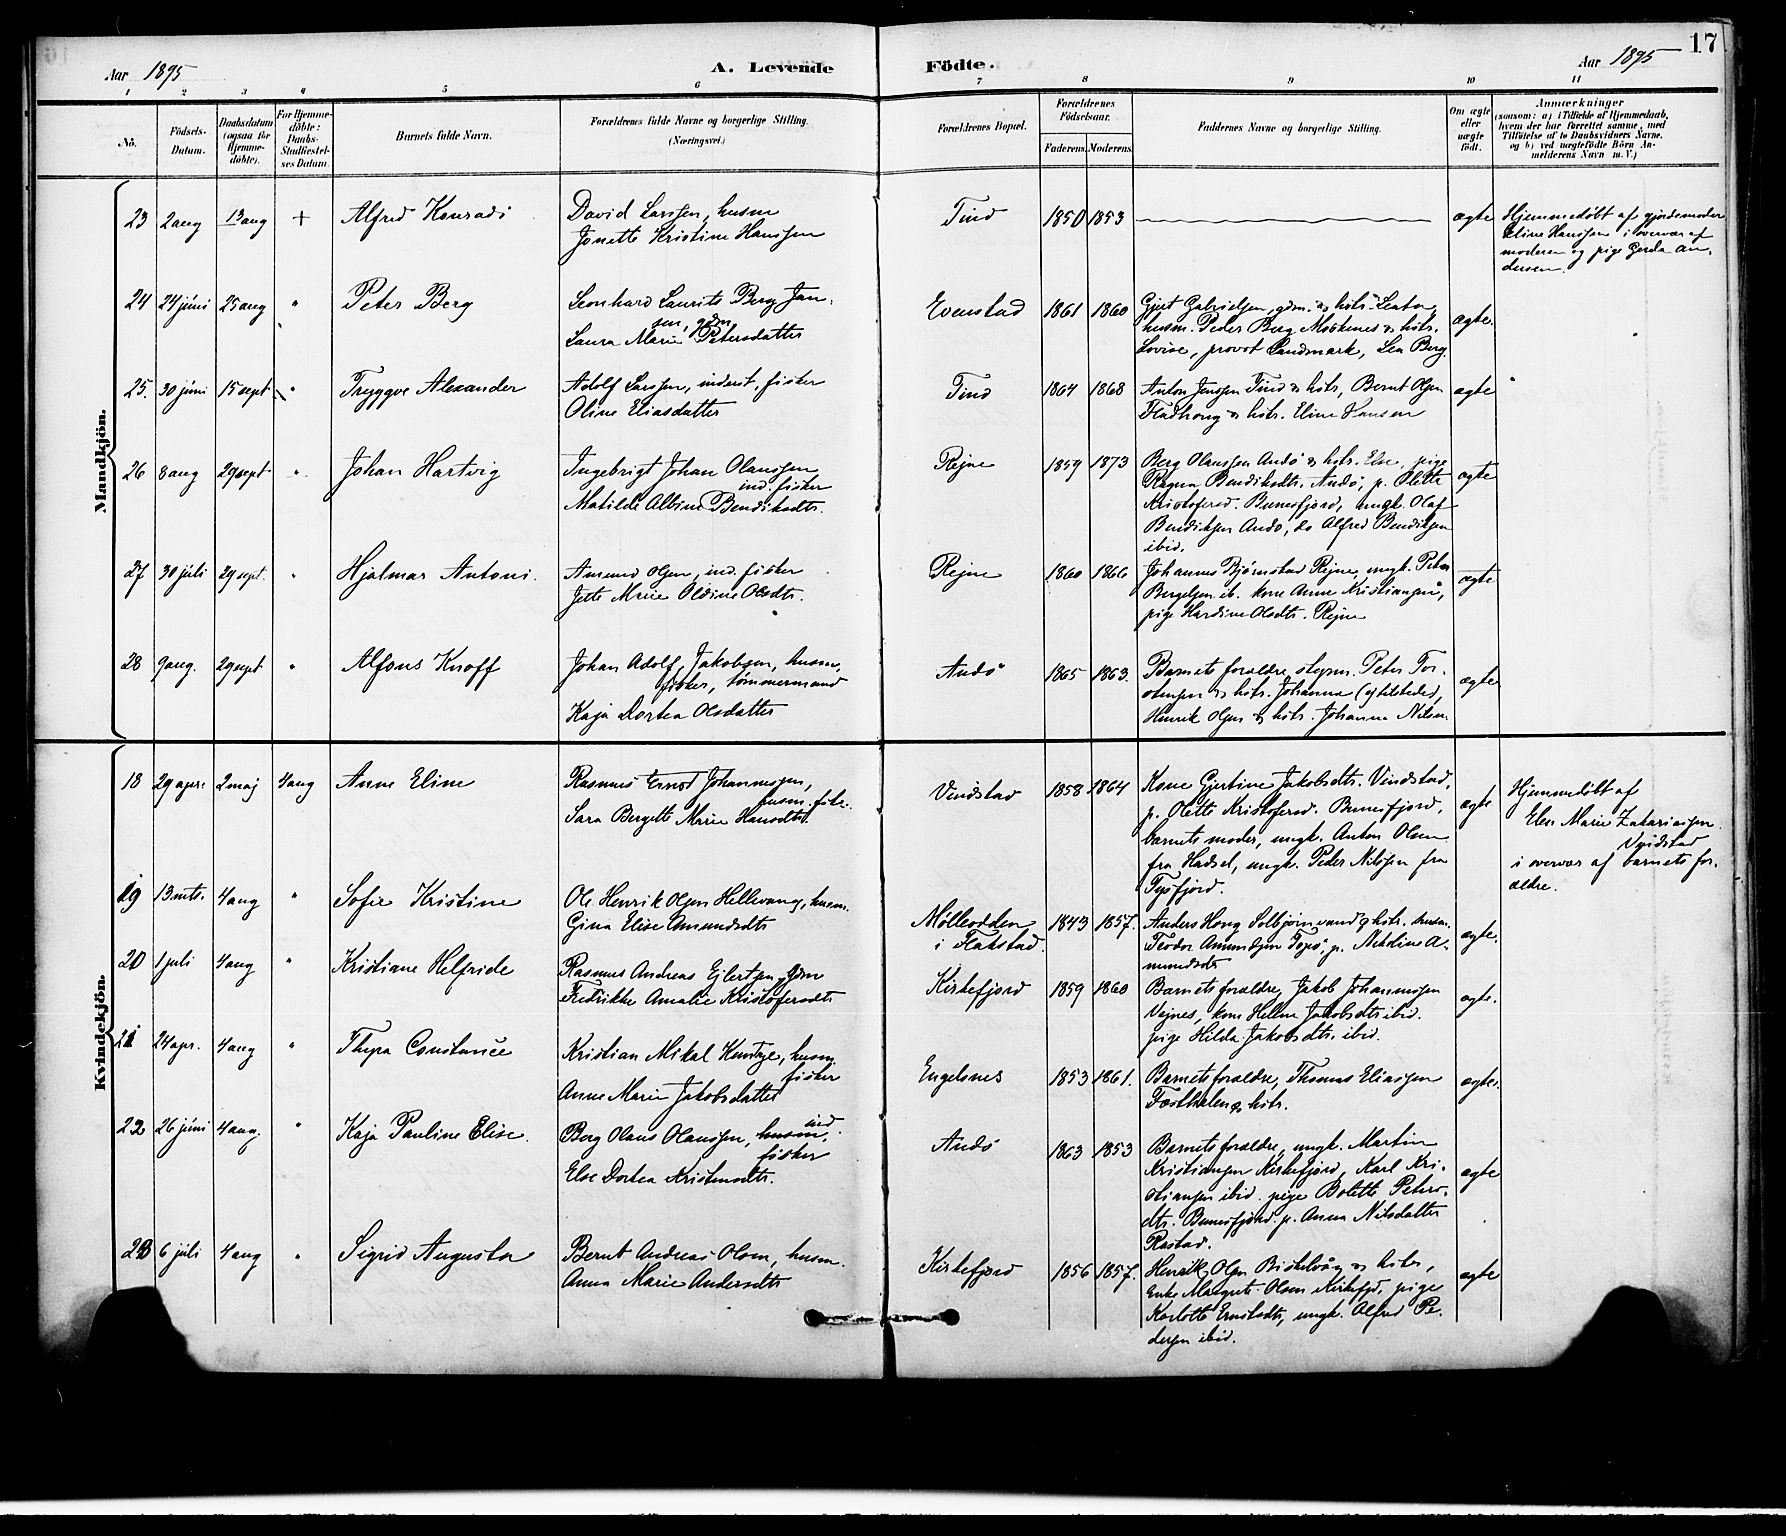 17
Aar 1895
A. Levende Födte.
Aar 1895
1 2 3 4 5 6 7 8 9 10 11
No.
Födsels-Datum.
Daabsdatum (ogsaa for Hjemme-döbte).
For Hjemme-döbte: Daabs-Stadfæstel-ses Datum.
Barnets fulde Navn.
Forældrenes fulde Navne og borgerlige Stilling.
(Næringsvei.)
Forældrenes Bopæl.
Forældrenes Födselsaar.
Faderens. Moderens.
Faddernes Navne og borgerlige Stilling.
Om ægte eller uægte födt.
Anmærkninger
(saasom: a) i Tilfælde af Hjemmedaab,
hvem der har forrettet samme, med
Tilföielse af to Daabsvidners Navne,
og b) ved uægtefödte Börn An-
melderens Navn m. V.)
Mandkjön.
23 2 aug 13 aug + Alfred Konradi
David Larssen, husm
Jonette Kristine Hanssen
Tind 1850 1853 ægte
Hjemmedöbt af gjordemoder
Eline Hanssen i overvær af
moderen og pige Gerda An-
dersen.
24 24 juni 25 aug " Peter Berg
Leonhard Laurits Berg Jan-
sen, gdm
Laura Marie Petersdatter
Evenstad 1861 1860
Gjert Gabrielsen, gdm. & hstr. Leata,
husm. Peder Berg Moskenes & hstr.
Lovise, provst Landmark, Lea Berg
ægte.
25. 30 juni 15 sept " Tryggve Alexander
Adolf Larssen, inderst, fisker
Oline Eliasdatter
Tind 1864 1868
Anton Jenssen Tind & hstr, Bernt Olsen
& hstr. Eline Hansen
ægte
26 8 aug 29 sept " Johan Hartvig
Ingebrigt Johan Olaussen,
ind. fisker
Matilde Albine Bendiksdtr.
Rejne 1859 1873
Berg Olaussen Andö & hstr. Else, pige
Ragna Bendiksdtr. Andö, p. Olette
Kristofersd. Bunesfjord, ungk. Olaf
Bendiksen Andö, do Alfred Bendiksen
ibid.
ægte
27 30 juli 29 sept. " Hjalmar Antoni.
Amund Olsen, ind. fisker
Jette Marie Oldine Olsdtr.
Rejne 1860 1866
Johannes Bjørnstad Rejne, ungk. Peter
ib. kone Anne Kristiansen,
pige Hardine Olsdtr. Rejne
ægte
28 9 aug. 29 sept " Alfons Knoff
Johan Adolf Jakobsen, husm.
fisker, tömmermand
Kaja Dortea Olsdatter
Andö 1865 1863.
Barnets forældre, Peter Tor-
stensen & hstr. Johanna (ej tilstede),
Henrik Olsen & hstr. Johanna Nilsen.
ægte
Kvindekjön.
18 29 apr. 2 maj 4 aug Anne Eline
Rasmus Ernst Johannesen,
husm. fisker
Sara Bergette Marie Hansdtr.
Vindstad 1858 1864
Kone Gjertine Jakobsdtr. Vindstad,
p. Olette Kristofersd. Bunesfjord,
barnets moder, ungk. Anton Olsen
fra Hadsel, ungk. Peder Nilssen fra
Tysfjord.
ægte
Hjemmedöbt af
Elen Marie Zakariassen
Vindstad
i overvær af barnets for-
ældre.
19 13 mts. 4 aug " Sofie Kristine
Ole Henrik Olsen Hellevang, husm.
Gina Elise Amundsdtr
Mölleodden
i Flakstad. 1843 1857.
Anders Hong Solbjörnvand & hstr.
Teodor Amundsen p. Nikoline A-
mundsdtr
ægte.
20 1 juli 4 aug " Kristiane Helfride
Rasmus Andreas Ejlertsen gdm
Fredrikke Amalie Kristofersdtr
Kirkefjord 1859 1860
Barnets forældre, Jakob Johannesen
Vejnes, kone Helene Jakobsdtr ibid.
pige Hilda Jakobsdtr. ibid.
ægte.
21 24 apr. 4 aug " Thyra Constance
Kristian Mikal husm.
fisker
Anne Marie Jakobsdatter
Engelsnes 1853 1861.
Barnets forældre, Thomas Eliassen
& hstr.
ægte.
22 26 juni 4 aug. " Kaja Pauline Elise.
Berg Olaus Olaussen, husm, ind.
fisker
Else Dortea Kristensdtr.
Andö 1863 1853
Barnets forældre, ungk. Martin
Kristiansen Kirkefjord, Karl Kri-
stiansen ibid. pige Bolette Peters-
dtr. Bunesfjord. p. Anna Nilsdatter
Rostad.
ægte
23 6 juli 4 aug " Sigrid Augusta
Bernt Andreas Olsen, husm.
Anna Marie Andersdtr
Kirkefjord 1856 1857.
Henrik Olsen & hstr,
Enke Margrete Olsen Kirkefjd, pige
Karlotte Ernstsdtr, ungk. Alfred Pe-
dersen ibid.
ægte